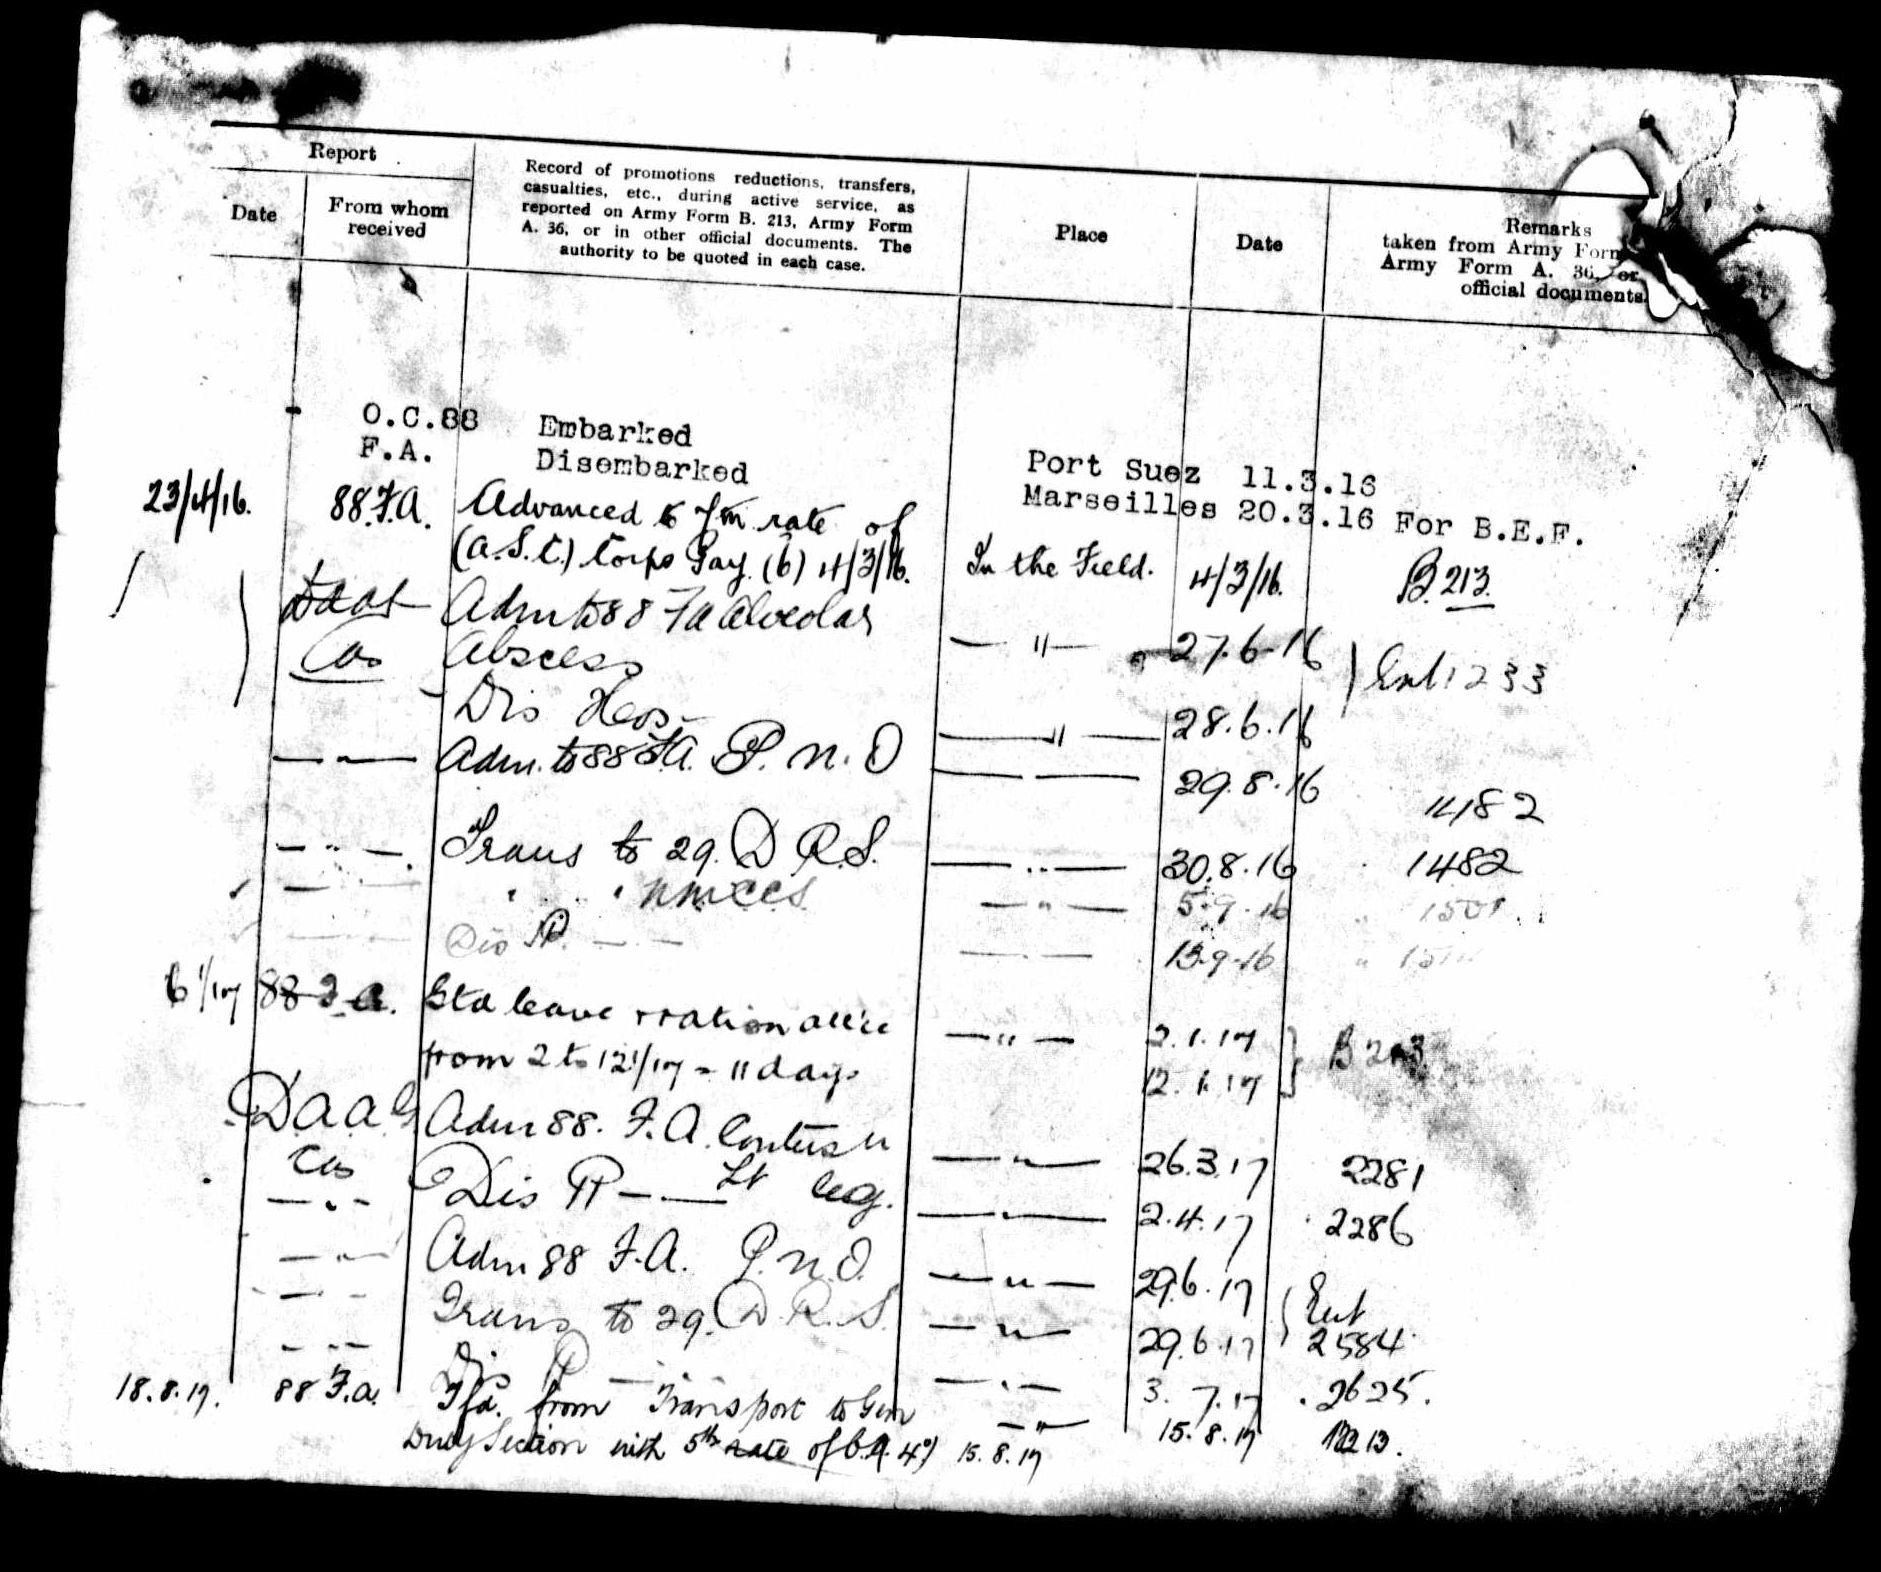 Report
Date
From whom
received
Record of promotions reductions, transfers,
casualties, etc., during active service, as
reported on Army Form B. 213, Army Form
A. 36, or in other official documents. The
authority to be quoted in each case.
Place
Date
Remarks
taken from Army Form
Army Form A. 36, or
official documents.
O.C.88 Embarked Port Suez 11.3.16
F.A. Disembarked Marseilles 20.3.16 For B.E.F.
23/4/16. 88.F.A. Advanced to rate of
(A.S.C.) Corps Pay (6) 4/3/16. In the Field. 4/3/16. B.213.
Adm to 88 FA Alveolar — " — 27.6.16
Cas Abscess 1233
Dis Hos — " — 28.6.16
— " — Adm. to 88 F.A. P.N.O — — 29.8.16 1482
— " — Trans to 29. D R.S. — " — 30.8.16 1482
— " " — " — 5.9.16
— Dis — — — 13.9.16
6/1/17 88 F.A. Gtd leave + ration allce — " — 2.1.17 B 213
from 2 to 12/1/17 = 11 days 12.1.17
D.A.A.G Adm 88. F.A. Contusn — " — 26.3.17 2281
Cas Dis — — Lt leg. — " — 2.4.17 2286
— " — Adm 88 F.A. P.N.O. — " — 29.6.17
— " — Trans to 29. D.R.S. — " — 29.6.17 2584
— " — Dis — — " — 3.7.17 2625.
18.8.17. 88 F.A. Tfd. from Transport to Gen — " — 15.8.17 B213.
Duty Section with 5th rate of 15.8.17